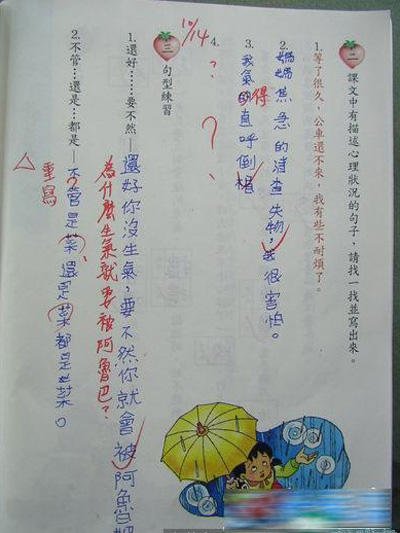 二 課文中有描述心理狀況的句子，請找一找並寫出來。
1.等了很久，公車還不來，我有些不耐煩了。
2.媽媽焦急的清查失物，我很害怕。
3.我氣的直呼倒楣
得
4.？？
10/14
三 句型練習
1.還好……要不然—還好你沒生氣，要不然你就會被阿魯
為什麼生氣就要被阿魯巴？
2.不管…還是…都是—不管是菜還是菜都是菜。
△重寫